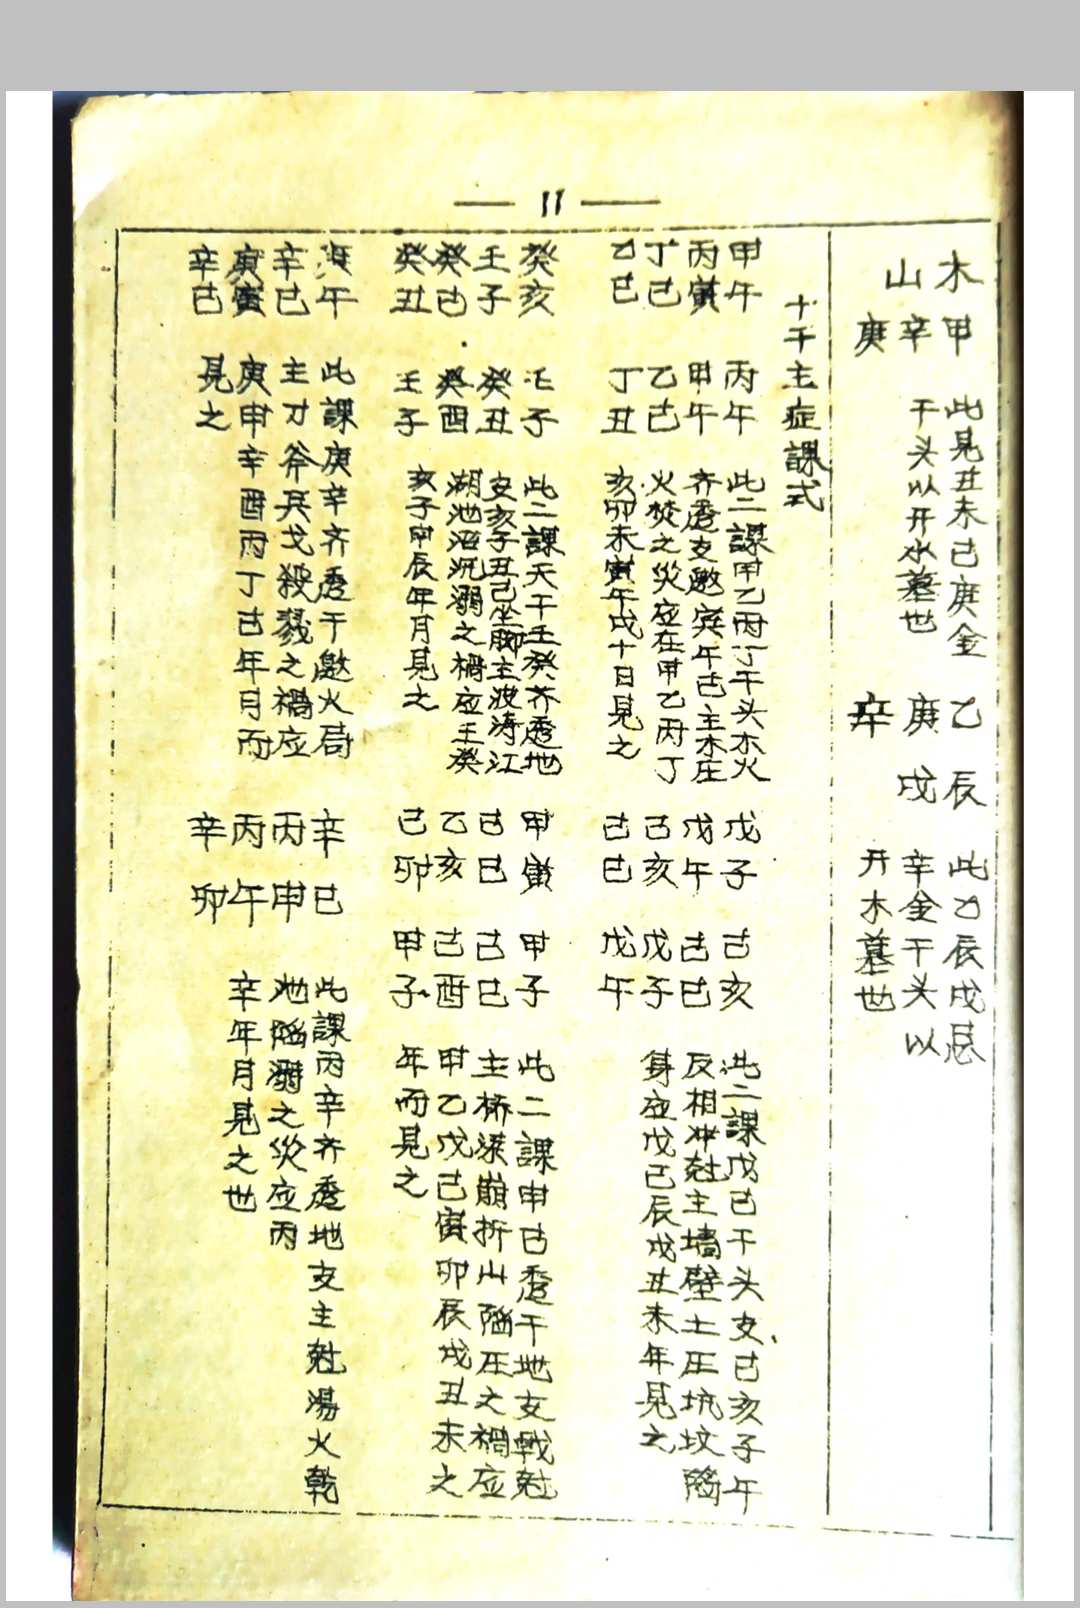 11
木 甲
山 辛
庚
此見丑未己庚金
干头以开水墓也
乙 辰
庚 戌
辛
此乙辰戌忌
辛金干头以
开木墓也
十干主症課式
甲午 丙午
丙寅 甲午
丁巳 乙巳
乙巳 丁丑
此二課甲乙丙丁干头木火
齐透支邀寅午巳主木庄
火焚之災应在甲乙丙丁
亥卯未寅午戌十日見之
戊子 己亥
戊午 己巳
己亥 戊子
己巳 戊午
此二課戊己干头支巳亥子午
反相冲尅主墙壁土压坑坟陷
身应戊己辰戌丑未年見之
癸亥 壬子
壬子 癸丑
癸巳 癸酉
癸丑 壬子
此二課天干壬癸齐透地
支亥子丑己坐脚主波涛江
湖池沼沉溺之禍应壬癸
亥子申辰年月見之
甲寅 甲子
己巳 己巳
乙亥 己酉
己卯 甲子
此二課甲己透干地支戰尅
主桥梁崩折山陷压之禍应
甲乙戊己寅卯辰戌丑未之
年而見之
午
辛巳
庚寅
辛巳
此課庚辛齐透干邀火局
主刀斧兵戈殺戮之禍应
庚申辛酉丙丁巳年月而
見之
辛巳
丙申
丙午
辛卯
此課丙辛齐透地支主尅湯火乾
池陷溺之災应丙
辛年月見之也